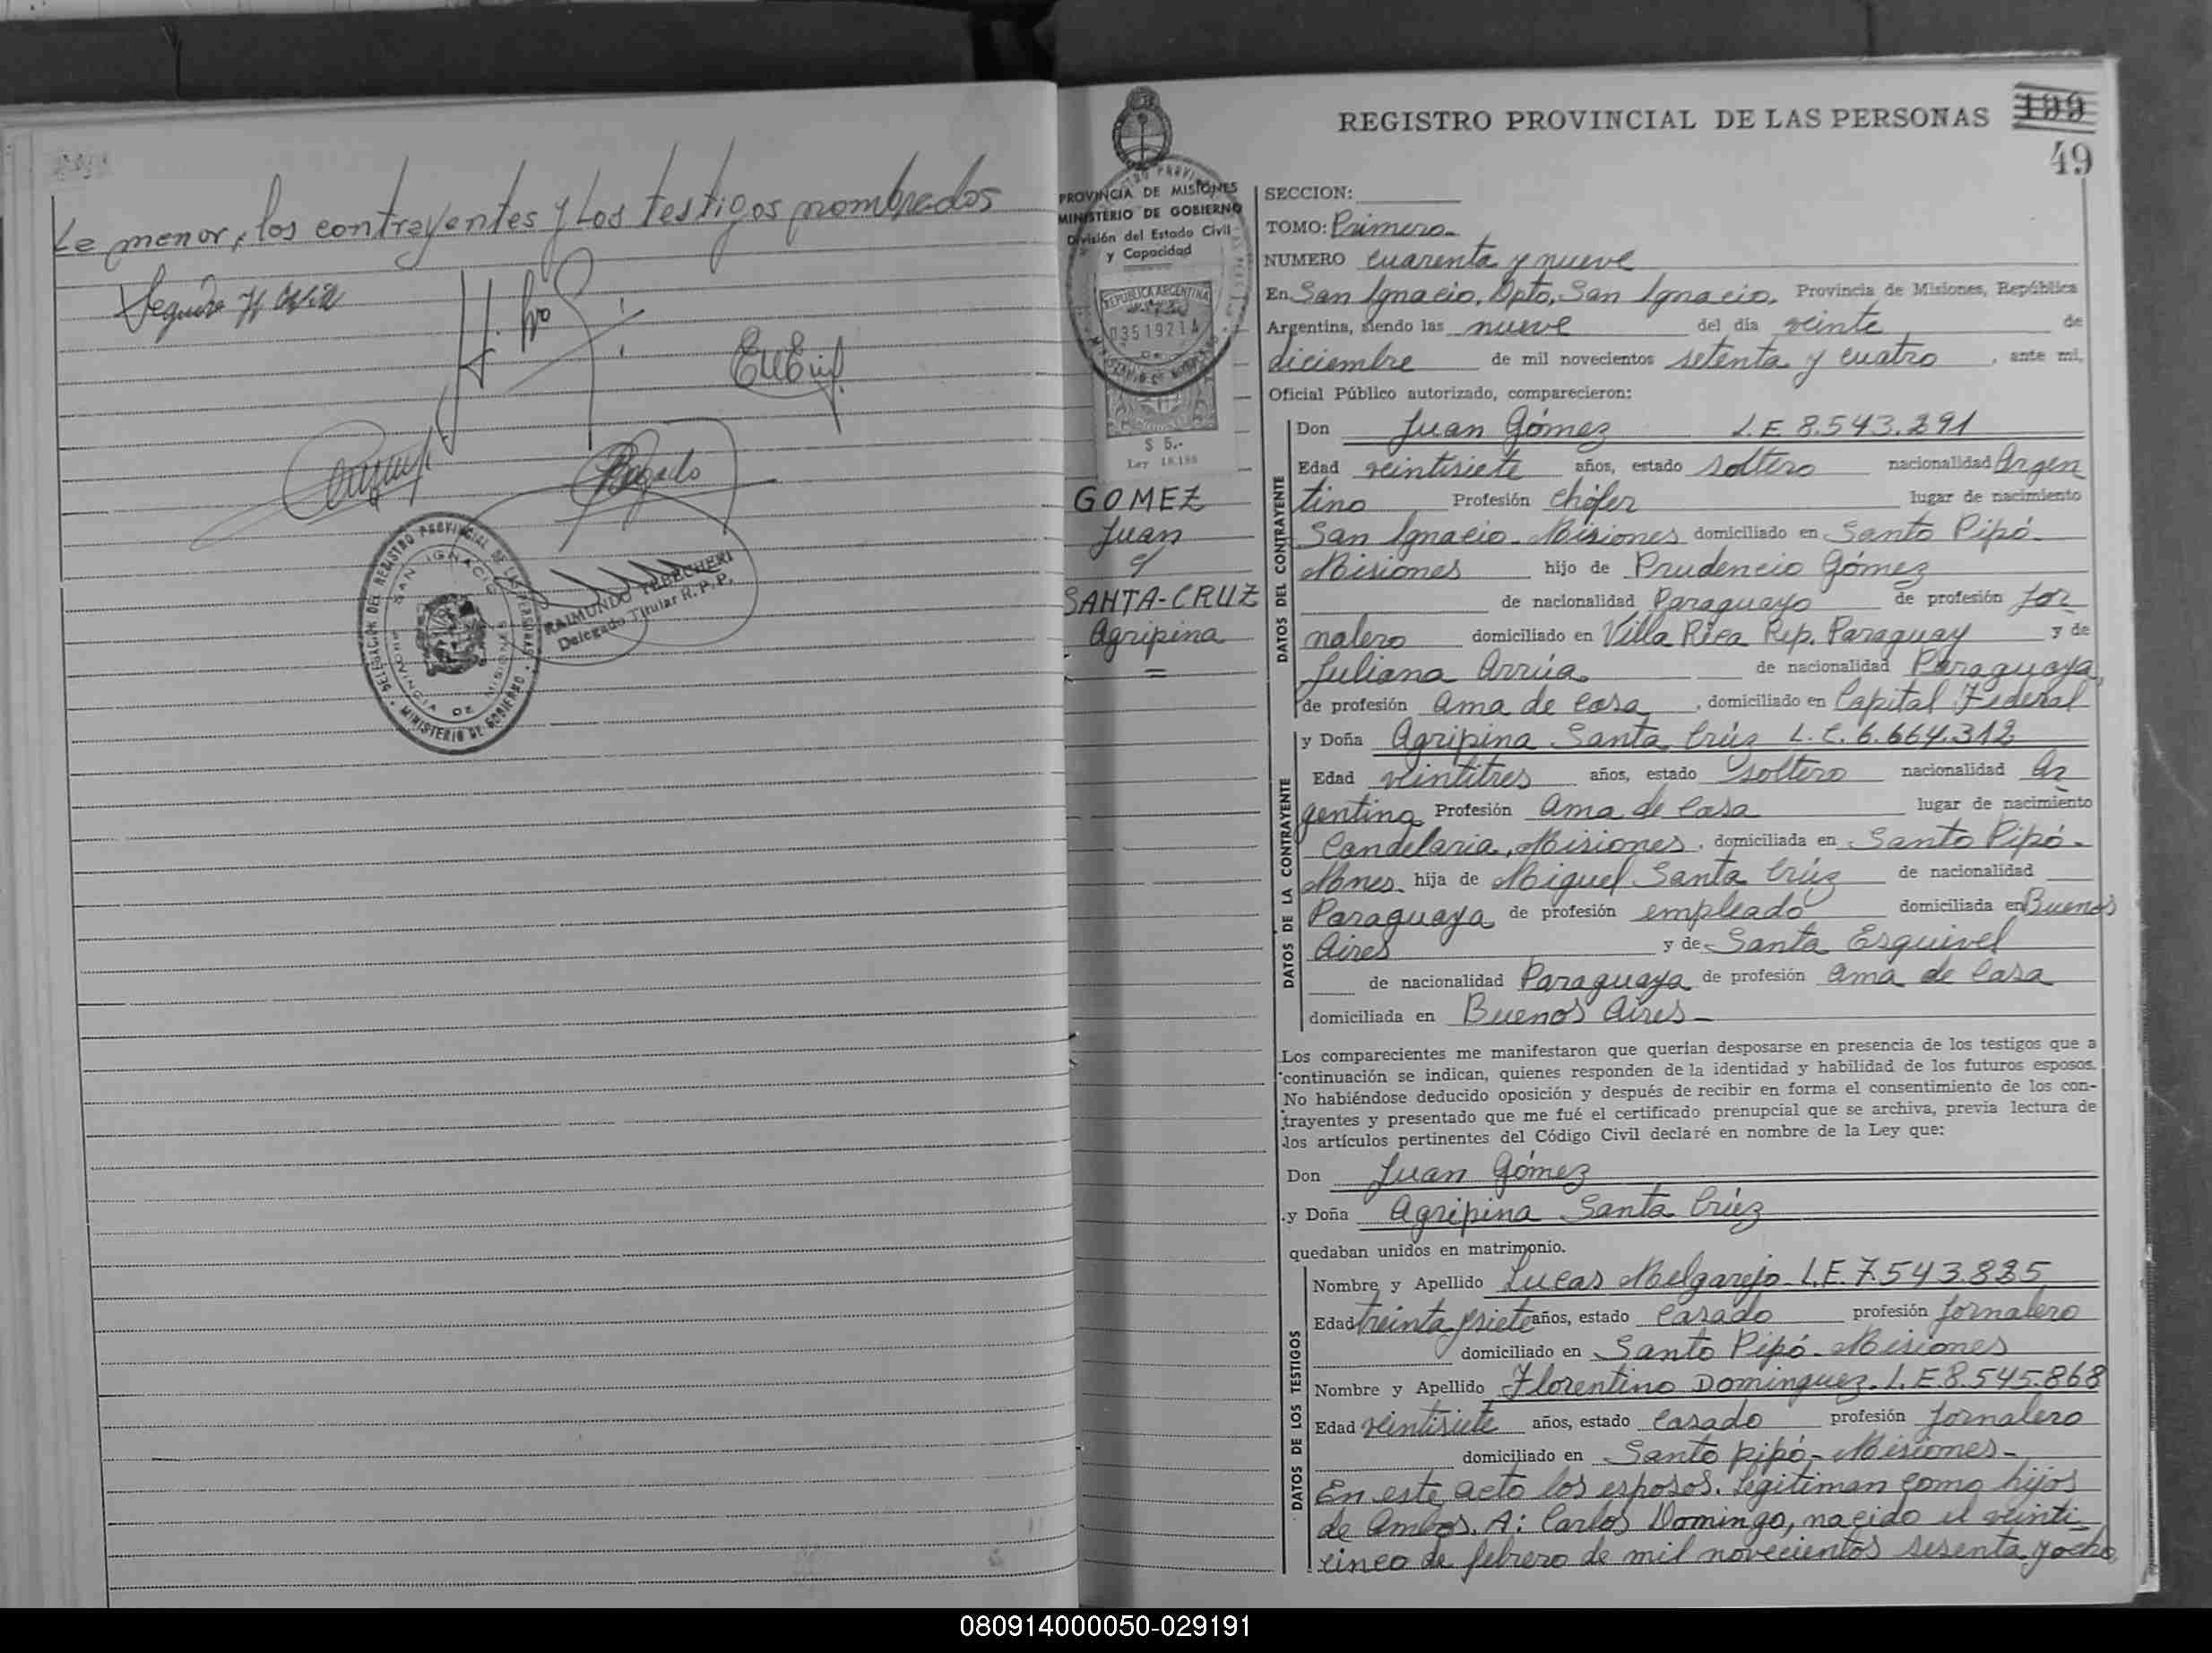 La menor, los contrayentes y los testigos nombrados
RAIMUNDO TEBECHERI
Delegado Titular R. P. P.
DELEGACION DEL REGISTRO PROVINCIAL DE LAS PERSONAS
SAN IGNACIO
PROVINCIA DE MISIONES
MINISTERIO DE GOBIERNO
REGISTRO PROVINCIAL DE LAS PERSONAS 199
49
PROVINCIA DE MISIONES
MINISTERIO DE GOBIERNO
División del Estado Civil
y Capacidad
REPUBLICA ARGENTINA
03519214
$ 5.-
Ley 18.188
GOMEZ
Juan
y
SANTA-CRUZ
Agripina
=
SECCION:
TOMO: Primero-
NUMERO cuarenta y nueve
En San Ignacio, Dpto, San Ignacio, Provincia de Misiones, República
Argentina, siendo las nueve del día veinte de
diciembre de mil novecientos setenta y cuatro, ante mi,
Oficial Público autorizado, comparecieron:
DATOS DEL CONTRAYENTE
Don Juan Gómez L.E 8.543.291
Edad veintisiete años, estado soltero nacionalidad Argen
tino Profesión Chófer lugar de nacimiento
San Ignacio-Misiones domiciliado en Santo Pipó-
Misiones hijo de Prudencio Gómez
de nacionalidad Paraguayo de profesión Jor
nalero domiciliado en Villa Rica Rep. Paraguay y de
Juliana Arrúa. de nacionalidad Paraguaya,
de profesión Ama de Casa, domiciliado en Capital Federal
DATOS DE LA CONTRAYENTE
y Doña Agripina Santa Crúz L.C. 6.664.312
Edad veintitres años, estado soltero nacionalidad Ar
gentina Profesión Ama de Casa lugar de nacimiento
Candelaria, Misiones, domiciliada en Santo Pipó-
Mnes- hija de Miguel Santa Crúz de nacionalidad
Paraguaya de profesión empleado domiciliada en Buenos
Aires y de Santa Esquivel
de nacionalidad Paraguaya de profesión Ama de Casa
domiciliada en Buenos Aires-
Los comparecientes me manifestaron que querían desposarse en presencia de los testigos que a
continuación se indican, quienes responden de la identidad y habilidad de los futuros esposos.
No habiéndose deducido oposición y después de recibir en forma el consentimiento de los con-
trayentes y presentado que me fué el certificado prenupcial que se archiva, previa lectura de
los artículos pertinentes del Código Civil declaré en nombre de la Ley que:
Don Juan Gómez
y Doña Agripina Santa Crúz
quedaban unidos en matrimonio.
DATOS DE LOS TESTIGOS
Nombre y Apellido Lucas Melgarejo-L.E.7.543.885
Edad treinta y siete años, estado Casado profesión Jornalero
domiciliado en Santo Pipó-Misiones
Nombre y Apellido Florentino Dominguez-L.E.8.545.868
Edad veintisiete años, estado Casado profesión Jornalero
domiciliado en Santo Pipó-Misiones-
En este acto los esposos. Legitiman como hijos
de Ambos. A: Carlos Domingo, nacido el veinti
cinco de febrero de mil novecientos sesenta y ocho,
080914000050-029191